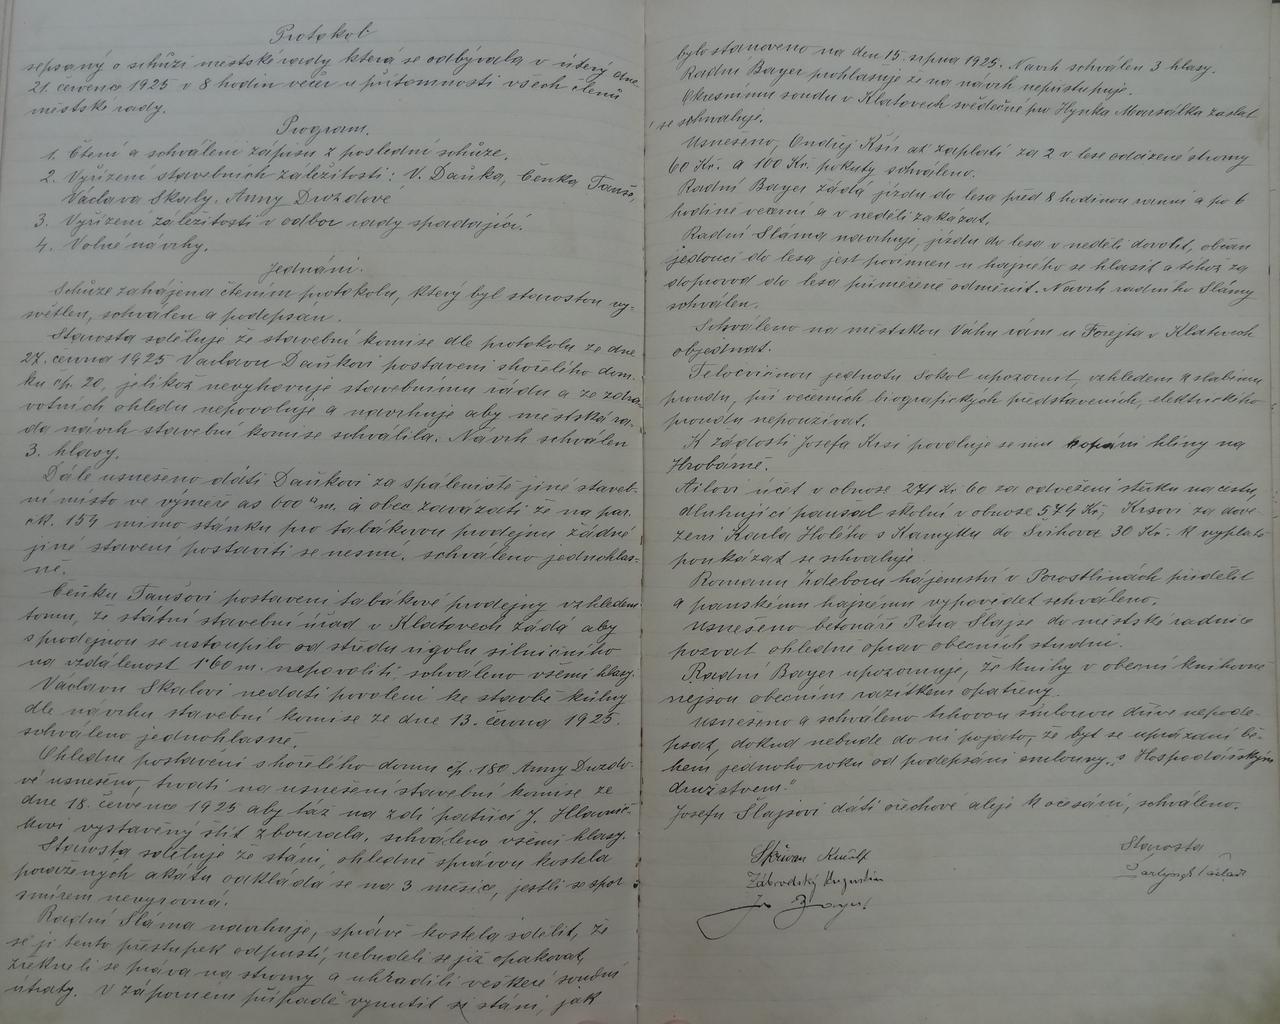 Protokol
sepsaný o schůzi městské rady která se odbývala v úterý dne
21. července 1925 v 8 hodin večer u přítomnosti všech členů
městské rady.
Program.
1. Čtení a schválení zápisu z poslední schůze.
2. Vyřízení stavebních záležitostí: V. Daňka, Čeňka Tauše,
Václava Skaly, Anny Drozdové
3. Vyřízení záležitostí v odbor rady spadající.
4. Volné návrhy.
Jednání.
Schůze zahájena čtením protokolu, který byl starostou vy-
světlen, schválen a podepsán.
Starosta sděluje že stavební komise dle protokolu ze dne
27. června 1925 Václavu Daňkovi postavení shořelého dom-
ku čp. 20, jelikož nevyhovuje stavebnímu řádu a ze zdra-
votních ohledů nepovoluje a navrhuje aby městská ra-
da návrh stavební komise schválila. Návrh schválen
3. hlasy.
Dále usnešeno dáti Daňkovi za spáleniště jiné staveb-
ní místo ve výměře as 600 m. a obec zavázati že na par.
čk. 154 mimo stánku pro tabákovou prodejnu žádné
jiné stavení postaviti se nesmí. schváleno jednohlas-
ně.
Čeňku Taušovi postavení tabákové prodejny vzhledem
tomu, že státní stavební úřad v Klatovech žádá aby
s prodejnou se ustoupilo od středu úholu silničního
na vzdálenost 1·60 m. nepovoliti, schváleno všemi hlasy.
Václavu Skalovi nedati povolení ke stavbě kůlny
dle návrhu stavební komise ze dne 13. června 1925.
schváleno jednohlasně.
Ohledně postavení shořelého domu čp. 180 Anny Drozdo-
vé usnešeno, trvati na usnešení stavební komise ze
dne 18. července 1925 aby táž na zdi patřící J. Hlavnič-
kovi vystavěný štít zbourala. schváleno všemi hlasy.
Starosta sděluje že stání, ohledně správou kostela
poražených akátů odkládá se na 3 měsíce, jestli se spor
smírem nevyrovná.
Radní Sláma navrhuje, správě kostela sdělit, že
se jí tento přestupek odpustí, nebudeli se již opakovat,
zřekneli se práva na stromy a uhradili veškeré soudní
útraty. V záporném případě vynutit si stání, jak
bylo stanoveno na den 15. srpna 1925. Návrh schválen 3 hlasy.
Radní Bayer prohlašuje že na návrh nepřistupuje.
Okresnímu soudu v Klatovech svědečné pro Hynka Maršálka zaslat
se schvaluje.
Usnešeno, Ondřej Kšír ať zaplatí za 2 v lese odcizené stromy
60 Kč. a 100 Kč. pokuty schváleno.
Radní Bayer žádá jízdu do lesa před 8 hodinou ranní a po 6
hodině večerní a v neděli zakázat.
Radní Sláma navrhuje, jízdu do lesa v neděli dovolit, občan
jedoucí do lesa jest povinnen u hajného se hlásit a téhož za
doprovod do lesa přiměřeně odměnit. Návrh radního Slámy
schválen.
Schváleno na městskou Váhu rám u Forejta v Klatovech
objednat.
Tělocvičnou jednotu Sokol upozornit, vzhledem k slabímu
proudu, při večerních biografických představeních, elektrického
proudu nepoužívat.
K žádosti Josefa Krsi povoluje se mu kopání hlíny na
Hrobárně.
Ailovi účet v obnose 271 Kč 60 za odvežení štěrku na cestu,
dlužnující paušál školní v obnose 574 Kč, Krsovi za dove-
zení Karla Holého s Kamýku do Švihova 30 Kč. k výplatě
poukázat se schvaluje.
Romanu Zdeboru hájemství v Porostlinách přidělit
a panskému hajnému vypovědět schváleno.
Usnešeno betonáře Petra Šlajse do městské radnice
pozvat ohledně oprav obecních studní.
Radní Bayer upozornuje, že knihy v obecní knihovně
nejsou obecním razítkem opatřeny.
Usnešeno a schváleno trhovou smlouvu dříve nepode-
psat, dokud nebude do ní pojato, že byt se uprázdní bě-
hem jednoho roku od podepsání smlouvy, "s Hospodářským
družstvem."
Josefu Šlajsovi dáti ořechové aleje k očesání, schváleno.
Starosta
Zábrodský Augustin
Jos Bayer